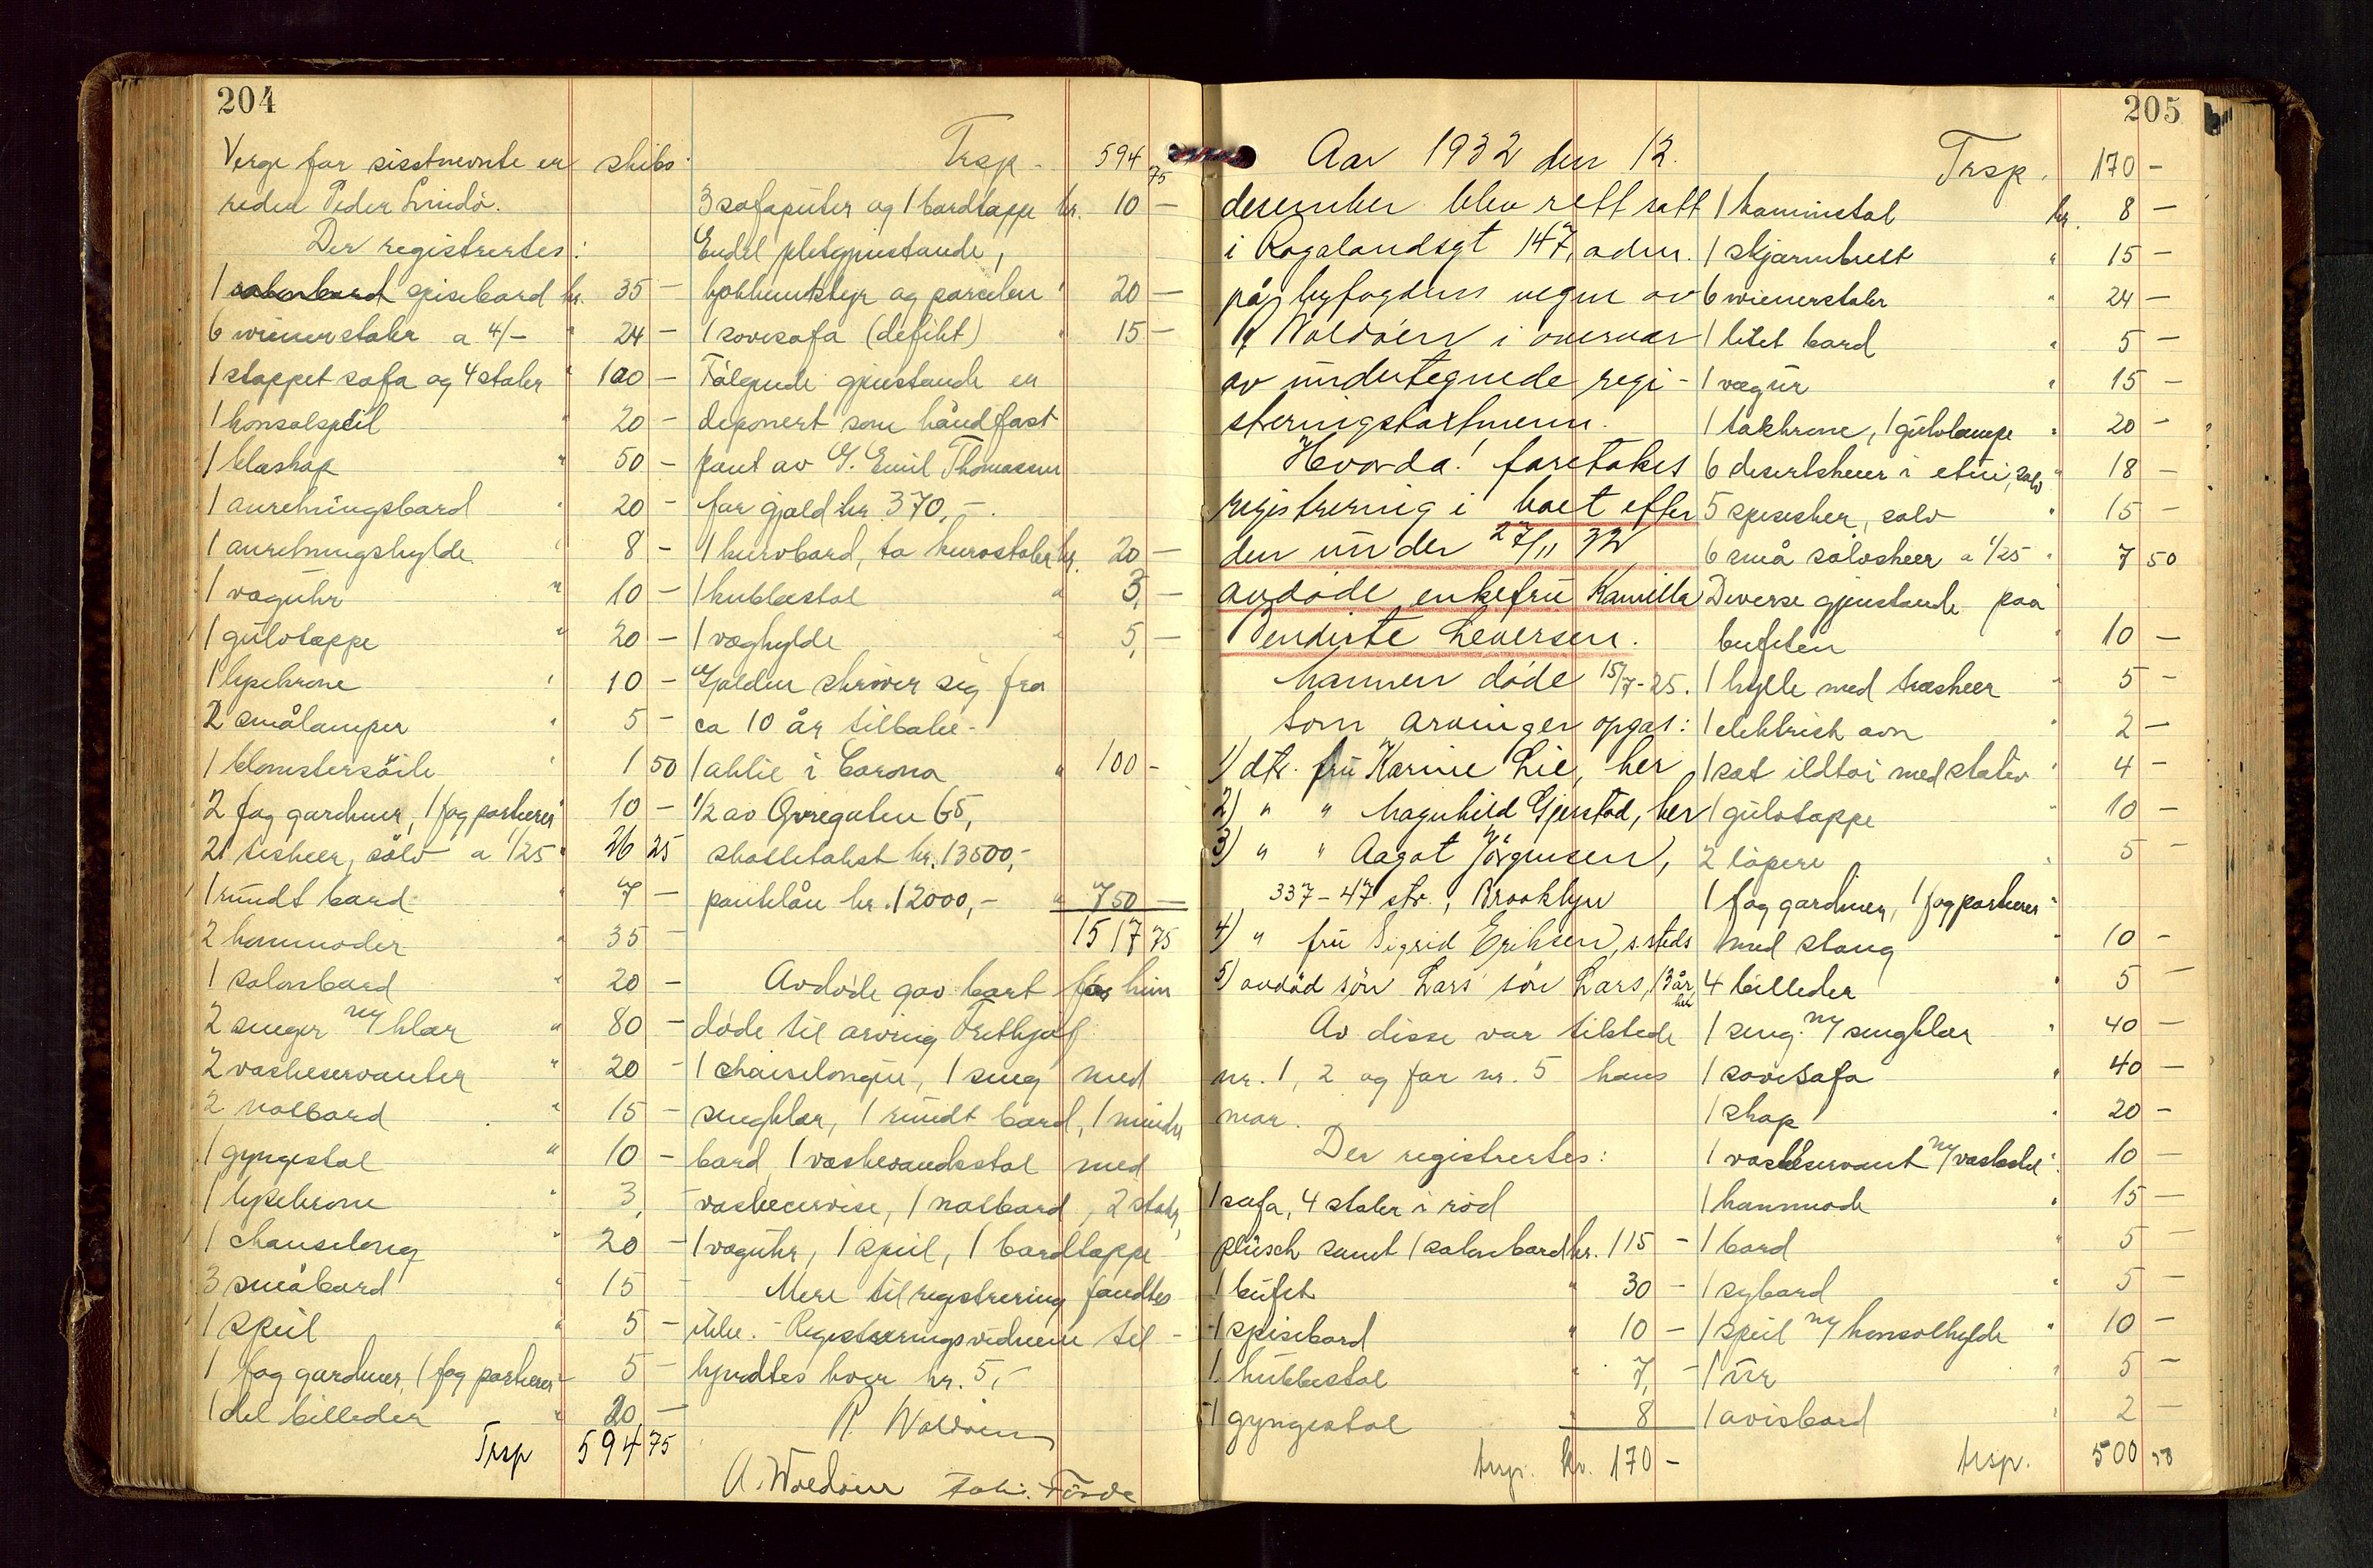 204
Verge for sisstnevnte er skibs-
reder Peder Lindö.
Der registrertes:
1 spisebord kr. 35 -
6 wienerstoler a 4/- " 24 -
1 stoppet sofa og 4 stoler " 100 -
1 konsolspeil " 20 -
1 klæskap " 50 -
1 anretningsbord " 20 -
1 anretningshylde " 8 -
1 væguhr " 10 -
1 gulvteppe " 20 -
1 lysekrone " 10 -
2 smålamper " 5 -
1 blomstersöile " 1 50
2 fag gardiner, 1 fag portierer " 10 -
21 teskeer, sölv a 1/25 " 26 25
1 rundt bord " 7 -
2 kommoder " 35 -
1 salonbord " 20 -
2 senger m/ klær " 80 -
2 vaskeservanter " 20 -
2 natbord " 15 -
1 gyngestol " 10 -
1 lysekrone " 3, -
1 chaiselong " 20 -
3 småbord " 15 -
1 speil " 5 -
1 fag gardiner, 1 fag portierer " 5 -
1 del billeder " 20, -
Trsp 594 75
Trsp. 594 75
3 sofaputer og 1 bordteppe kr. 10 -
Endel pletgjenstande,
kjökkentöyr og porcelen " 20 -
1 sovesofa (defekt) " 15 -
Fölgende gjenstande er
deponert som håndfast
pant av G. Emil Thomassen
for gjæld kr. 370,-.
1 kurvbord, to kurvstoler kr. 20 -
1 kubbestol " 3, -
1 væghylde " 5, -
Gjælden skriver sig fra
ca 10 år tilbake.
1 aktie i Corona " 100 -
1/2 av Övregaten 65,
skattetakst kr. 13500,-
pantelån kr. 12000,- " 750 -
1517 75
Avdöde gav bort för hun
döde til arving Frithjof
1 chaiselongue, 1 seng med
sengklær, 1 rundt bord, 1 mindre
bord, 1 vaskevandsstol med
vaskeservise, 1 natbord, 2 stoler,
1 væguhr, 1 speil, 1 bordteppe
Mere til registrering fandtes
ikke. - Registreringsvidnene til-
kjendtes hver kr. 5,-
R. Waldöen
A. Woldöen Joh. Förde
205
Aar 1932 den 12.
desember blev rett satt
i Rogalandsgt 147, adm.
på byfogdens vegne av
R. Waldöen i overvær
av undertegnede regi-
steringstaxtmenn.
Hvorda! foretokes
registrering i boet efter
den under 27/11 32
avdöde enkefru Kamilla
Tendiste Seversen.
Mannen döde 15/7-25.
Som arvinger opgas:
1) dtr. fru Karine Lie, her
2) " " Magnhild Gjerstad, her
3) " " Aagot Jörgensen,
337-47 str., Brooklyn
4) " fru Sigrid Eriksen, s.steds
5) avdöd sön Lars' sön Lars, 13 år, her
Av disse var tilstede
nr. 1, 2 og for nr. 5 hans
mor.
Der registrertes:
1 sofa, 4 stoler i röd
plüsch samt 1 salonbord kr. 115 -
1 bufet " 30 -
1 spisebord " 10 -
1 kubbestol " 7, -
1 gyngestol " 8
trsp. kr. 170 -
Trsp. 170 -
1 kaminstol kr. 8 -
1 skjærmbrett " 15 -
6 wienerstoler " 24 -
1 litet bord " 5 -
1 vægur " 15 -
1 takkrone, 1 gulvlampe " 20 -
6 desertskeer i etui, sölv " 18 -
5 spiseskeer, sölv " 15 -
6 små sölvskeer a 1/25 " 7 50
Diverse gjenstande paa
bufeten " 10 -
1 hylle med træskeer " 5 -
1 elektrisk ovn " 2 -
1 sæt ildtöi med stativ " 4 -
1 gulvteppe " 10 -
2 löpere " 5 -
1 fag gardiner, 1 fag portierer
med stang " 10 -
4 billeder " 5 -
1 seng m/ sengklær " 40 -
1 sovesofa " 40 -
1 skap " 20 -
1 vaskeservant m/ vaskestel " 10 -
1 kommode " 15 -
1 bord " 5 -
1 sybord " 5 -
1 speil m/ konsolhylde " 10 -
1 ur " 5 -
1 avisbord " 2 -
trsp. 500 50